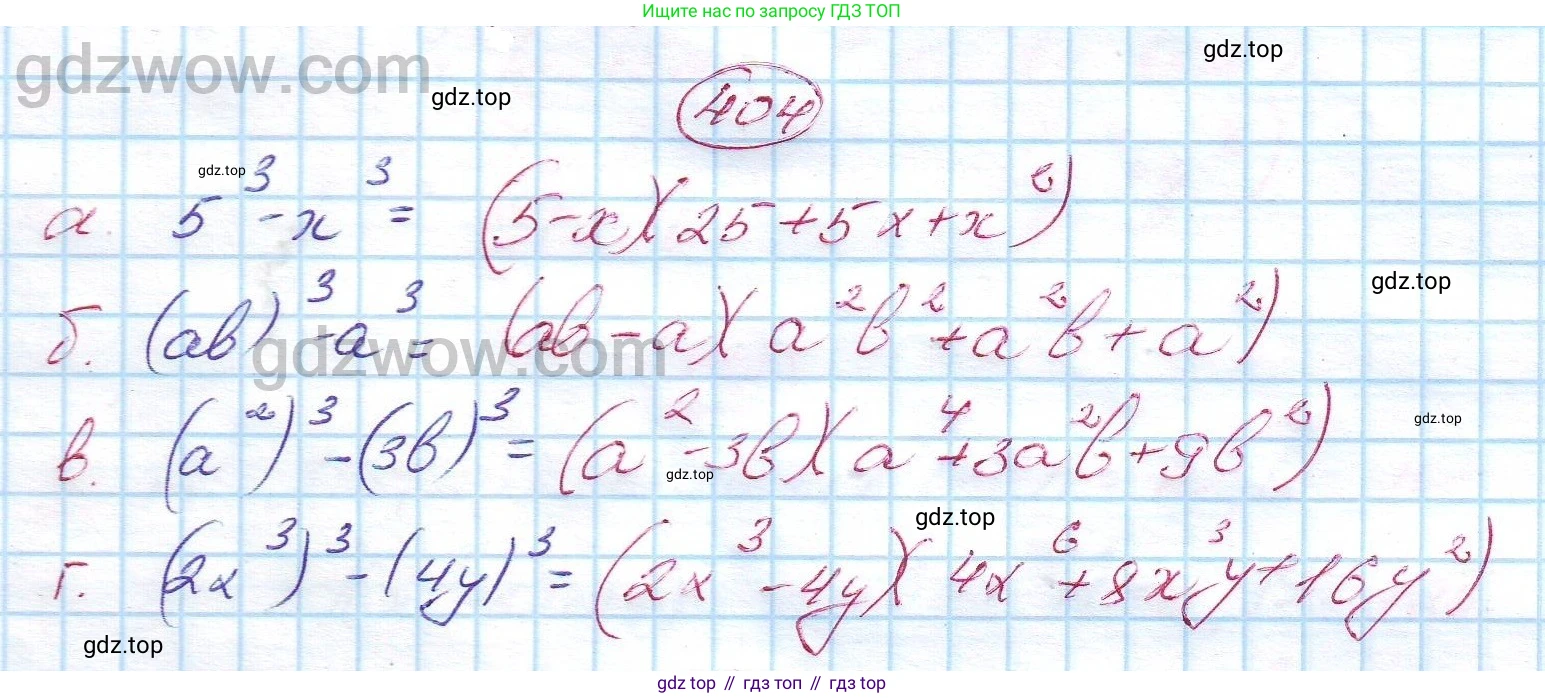 Ищите нас по запросу ГДЗ ТОП
gdzwow.com
gdz.top
gdz.top
404
gdz.top
а. 5³ - x³ = (5 - x)(25 + 5x + x²)
gdz.top
б. (ab)³ - a³ = (ab - a)(a²b² + a²b + a²)
gdzwow.com
gdz.top
в. (a²)³ - (3b)³ = (a² - 3b)(a⁴ + 3a²b + 9b²)
gdz.top
gdz.top
г. (2x³)³ - (4y)³ = (2x³ - 4y)(4x⁶ + 8x³y + 16y²)
gdz.top
gdz top // гдз топ // гдз top